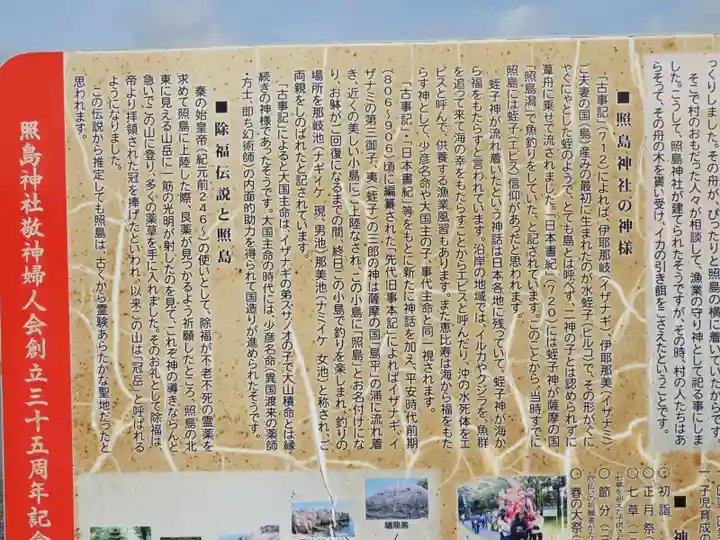 っくりしました。その舟が、ぴったりと照島の横に着いていたからです。
そこで村のおもだった人々が相談して、漁業の守り神として祀る事にしま
した。こうして、照島神社が建てられたそうですが、その時、村の人たちはあ
らそって、その舟の木を貰い受け、イカの引き餌をこさえたということです。
■照島神社の神様
「古事記」(712)によれば、伊耶那岐(イザナギ)伊耶那美(イザナミ)
ご夫妻の国(島)産みの最初に生まれたのが水蛭子(ヒルコ)で、その形がぐに
やぐにゃとした蛭のようで、とても島とは呼べず、二神の子とは認められずに
葦舟に乗せて流されました。「日本書紀」(720)には蛭子神が薩摩の国
「照島潟」で魚釣りをしていた、と記されています。このことから、当時すでに
照島には蛭子(エビス)信仰があったと思われます。
蛭子神が流れ着いたという神話は日本各地に残っていて、蛭子神が海か
ら福をもたらすと言われています。沿岸の地域では、イルカやクジラを、魚群
を追って来て海の幸をもたらすことからエビスと呼んだり、沖の水死体をエ
ビスと呼んで、供養する漁業風習もあります。また恵比寿は海から福をもた
らす神として、少彦名命や大国主の子・事代主命と同一視されます。
「古事記」・「日本書紀」等をもとに新たに神話を加え、平安時代前期
(806〜906)頃に編纂された「先代旧事本記」によればイザナギ、イ
ザナミの第三御子、夷(蛭子)の三郎の神は薩摩の国「島平」の浦に流れ着
き、近くの美しい小島にご上陸なされ、この小島に「照島」とお名付けにな
り、お躰がご回復になるまでの間、終日この小島で釣りを楽しまれ、釣りの
場所を那岐池(ナギイケ 現、男池)那美池(ナミイケ 女池)と称され、ご
両親をしのばれたと記されています。
「古事記」によると大国主命は、イザナギの弟スサノオの子で大山積命とは縁
続きの神様であったそうです。大国主命の時代には、少彦名命(異国渡来の薬師
・方士、即ち幻術師)の内面的助力を得られて国造りが進められたそうです。
■除福伝説と照島
秦の始皇帝(紀元前246〜)の使いとして、除福が不老不死の霊薬を
求めて照島に上陸した際、良薬が見つかるよう祈願したところ、照島の北
東に見える山岳に一筋の光明が射したのを見て、これぞ神の導きならんと
急いでこの山に登り、多くの薬草を手に入れました。そのお礼として除福は、
帝より拝領された冠を捧げたといわれ、以来この山は「冠岳」と呼ばれる
ようになりました。
この伝説から推定しても照島は、古くから霊験あらたかな聖地だったと
思われます。
照島神社敬神婦人会創立三十五周年記念
■神
一、子児育成の
〇初詣
〇正月祭(
〇七草(
〇節分(
〇春の大祭(